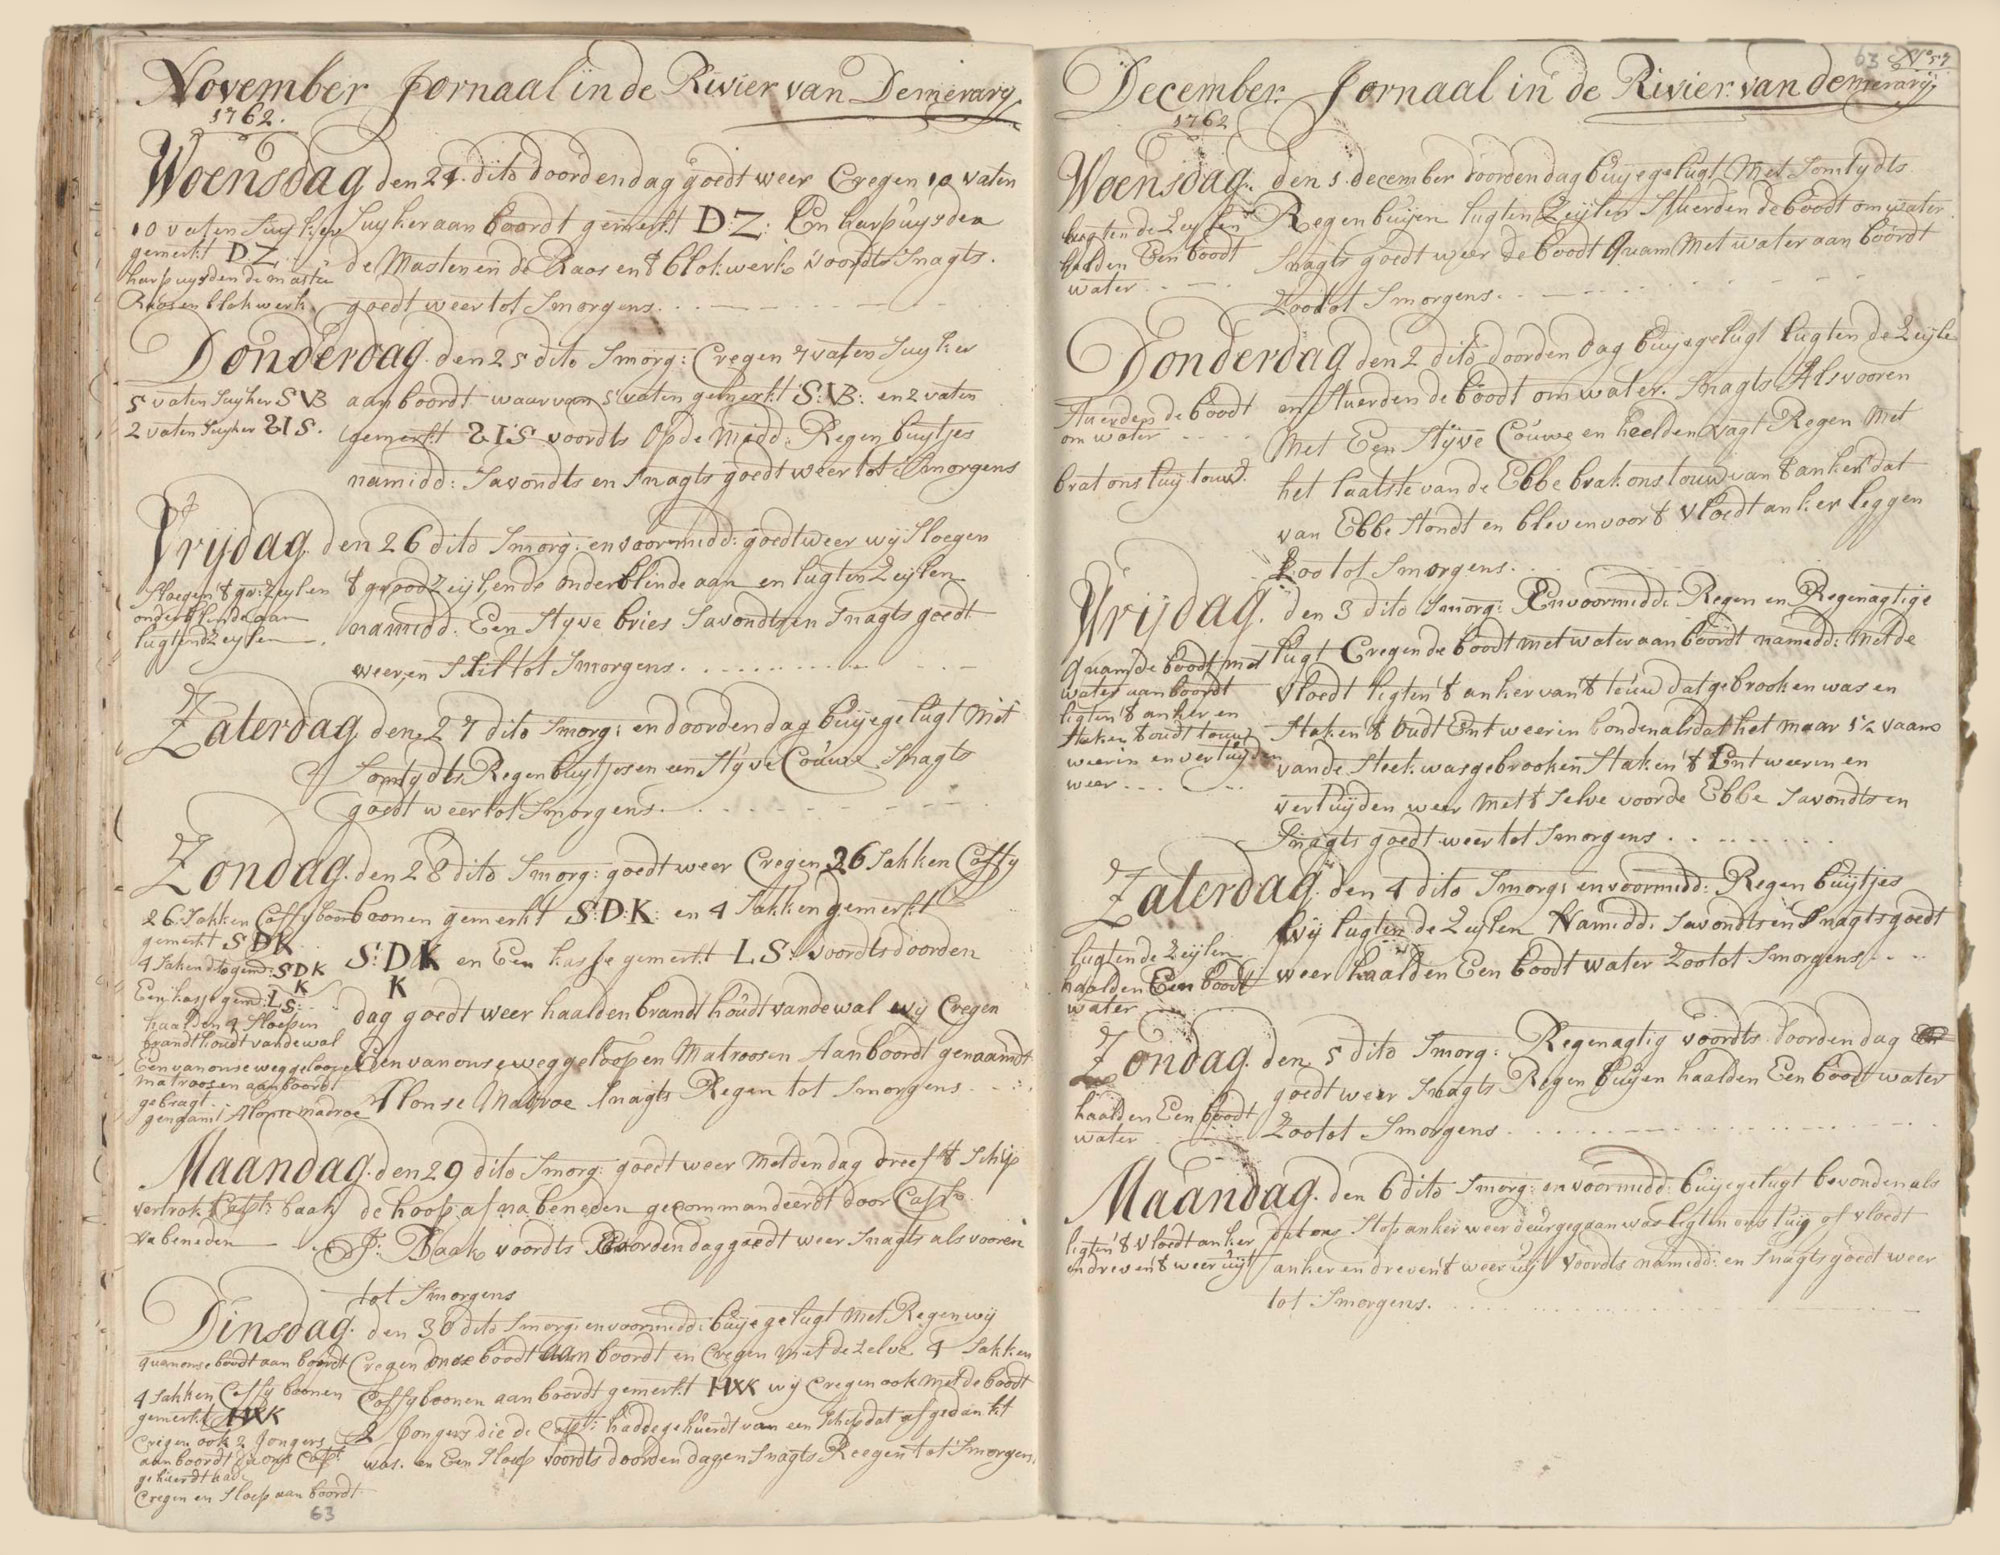 November Jornaal in de Rivier van Demerary
1762.
Woensdag den 24. dito doorden dag goedt weer Cregen 10 vaten
10 vaten Suyker
gemerkt DZ
harpuysden de masten
Raas en blokwerk.
Suyker aan boordt gemerkt D:Z: En harpuysden
de Masten en de Raas en 't blokwerk voordts Snagts.
goedt weer tot Smorgens.
Donderdag. den 25 dito Smorg: Cregen 7 vaten Suyker
5 vaten Suyker SVB
2 vaten Suyker SIS.
aan boordt waar van 5 vaten gemerkt S:VB: en 2 vaten
gemerkt SIS voordts Op de Midd: Regen buytjes
namidd: Savondts en Snagts goedt weer tot Smorgens
Vrijdag. den 26 dito Smorg: en voormidd: goedt weer wij Sloegen
Sloegen 't gr: Zeyl en
onderblinde aan
lugten d Zeylen
't groodt Zeyl, en de onderblinde aan en lugten Zeylen
namidd: Een Styve bries Savondts en Snagts goedt
weer, en Stil tot Smorgens.
Zaterdag den 27 dito Smorg: en doorden dag buijege lugt Met
Somtydts Regen buytjes en een Styve Couwe Snagts
goedt weer tot Smorgens.
Zondag. den 28 dito Smorg: goedt weer Cregen 26 Sakken Coffy
26 Sakken Coffy boon
gemerkt SDK
4 Saken dito gem: SDK
K
Een kasje gem: LS:
haalden 4 Sloepen
brandt houdt van de wal
Een van onse weggeloopen
matroosen aan boordt
gebragt.
genaamt Alonse madroe
boonen gemerkt S:D:K: en 4 Sakken gemerkt
S:DK en Een kasje gemerkt LS: voordts doorden
K
dag goedt weer haalden brandt houdt van de wal wij Cregen
Een van onse weggeloopen Matroosen Aan boordt genaamdt
Alonse Madroe Snagts Regen tot Smorgens
Maandag. den 29 dito Smorg: goedt weer Met den dag dreef 't Schip
vertrok Capt: baak
na beneden
de hoop af na beneden gecommandeerdt door Capt:
J: Baak voordts Doorden dag goedt weer Snagts als vooren
tot Smorgens
Dinsdag. den 30 dito Smorg: en voormidd: buijege lugt Met Regen wij
quam onse boodt aan boordt
4 Sakken Coffy boonen
gemerkt HXK
Cregen ook 2 Jongers
aan boordt die ons Capt:
gehuerdt hadt
Cregen en Sloep aan boordt
Cregen onse boodt aan boordt en Cregen met de Zelve 4 Sakken
Coffy boonen aan boordt gemerkt HXK wij Cregen ook met de boodt
2 Jongers die de Capt: hadde gehuerdt van een Schip dat afgedankt
was. en Een Sloep voordts doorden dag en Snagts Reegen tot Smorgens.
63
63
December. Jornaal in de Rivier van demerarij,
1762
Woensdag. den 1. december doorden dag buijege lugt Met Somtydts
lugten de Zeylen
haalden Een boodt
water
Regen buijen lugten Zeylen Stuerden de boodt om water.
Snagts goedt weer de boodt quam Met water aan boordt
Zoo tot Smorgens.
Donderdag den 2 dito doorden dag buijege lugt lugten de Zeyle
Stuerden de boodt
om water
brak ons tuij touw.
en Stuerden de boodt om water. Snagts Als vooren
Met Een Styve Couwe en heelden nagt Regen Met
het laatste van de Ebbe brak ons touw van 't anker dat
van Ebbe Stondt en bleven voor 't vloedt anker leggen
Zoo tot Smorgens.
Vrijdag. den 3 dito Smorg: En voormidd: Regen en Regenagtige
quam de boodt met
water aan boordt
ligten 't anker en
staken 't oudt touw
weer in en vertuijden
weer
lugt Cregen de boodt met water aan boordt namidd: Met de
vloedt ligten 't anker van 't touw dat gebrooken was en
Staken 't Oudt Ent weer in bondenalsdat het maar 1½ vaam
van de Steek was gebrooken Staken 't Ent weer in en
vertuijden weer Met 't Selve voor de Ebbe Savondts en
Snagts goedt weer tot Smorgens
Zaterdag. den 4 dito Smorg: en voormidd: Regen buijtjes
lugten de Zeylen
haalden Een boodt
water
Wij lugten de Zeylen Namidd: Savondts en Snagts goedt
weer haalden Een boodt water Zoo tot Smorgens.
Zondag. den 5 dito Smorg: Regenagtig voordts doorden dag
haalden Een boodt
water
goedt weer Snagts Regen buijen haalden Een boodt water
Zoo tot Smorgens
Maandag. den 6 dito Smorg: en voormidd: buijege lugt bevonden als
ligten 't vloedt anker
en dreven 't weer uijt
dat ons Stop anker weer deurgegaan was ligten ons tuij of vloedt
anker en dreven 't weer uijt voordts namidd: en Snagts goedt weer
tot Smorgens.